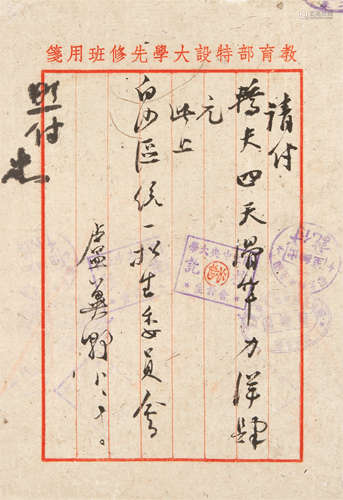 教育部特設大學先修班用箋
請付
轎夫四天滑竿力洋肆
元
此上
白沙區統一招生委員會
盧冀野
照付